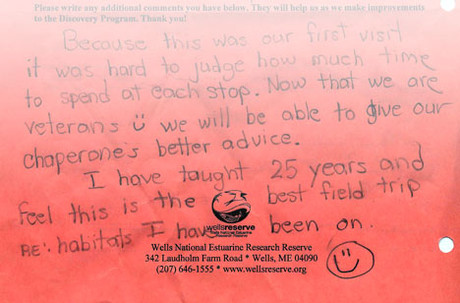 Please write any additional comments you have below. They will help us as we make improvements
to the Discovery Program. Thank you!
Because this was our first visit
it was hard to judge how much time
to spend at each stop. Now that we are
veterans we will be able to give our
chaperone's better advice.
I have taught 25 years and
feel this is the best field trip
re: habitats I have been on.
wellsreserve
Wells National Estuarine Research Reserve
342 Laudholm Farm Road * Wells, ME 04090
(207) 646-1555 * www.wellsreserve.org